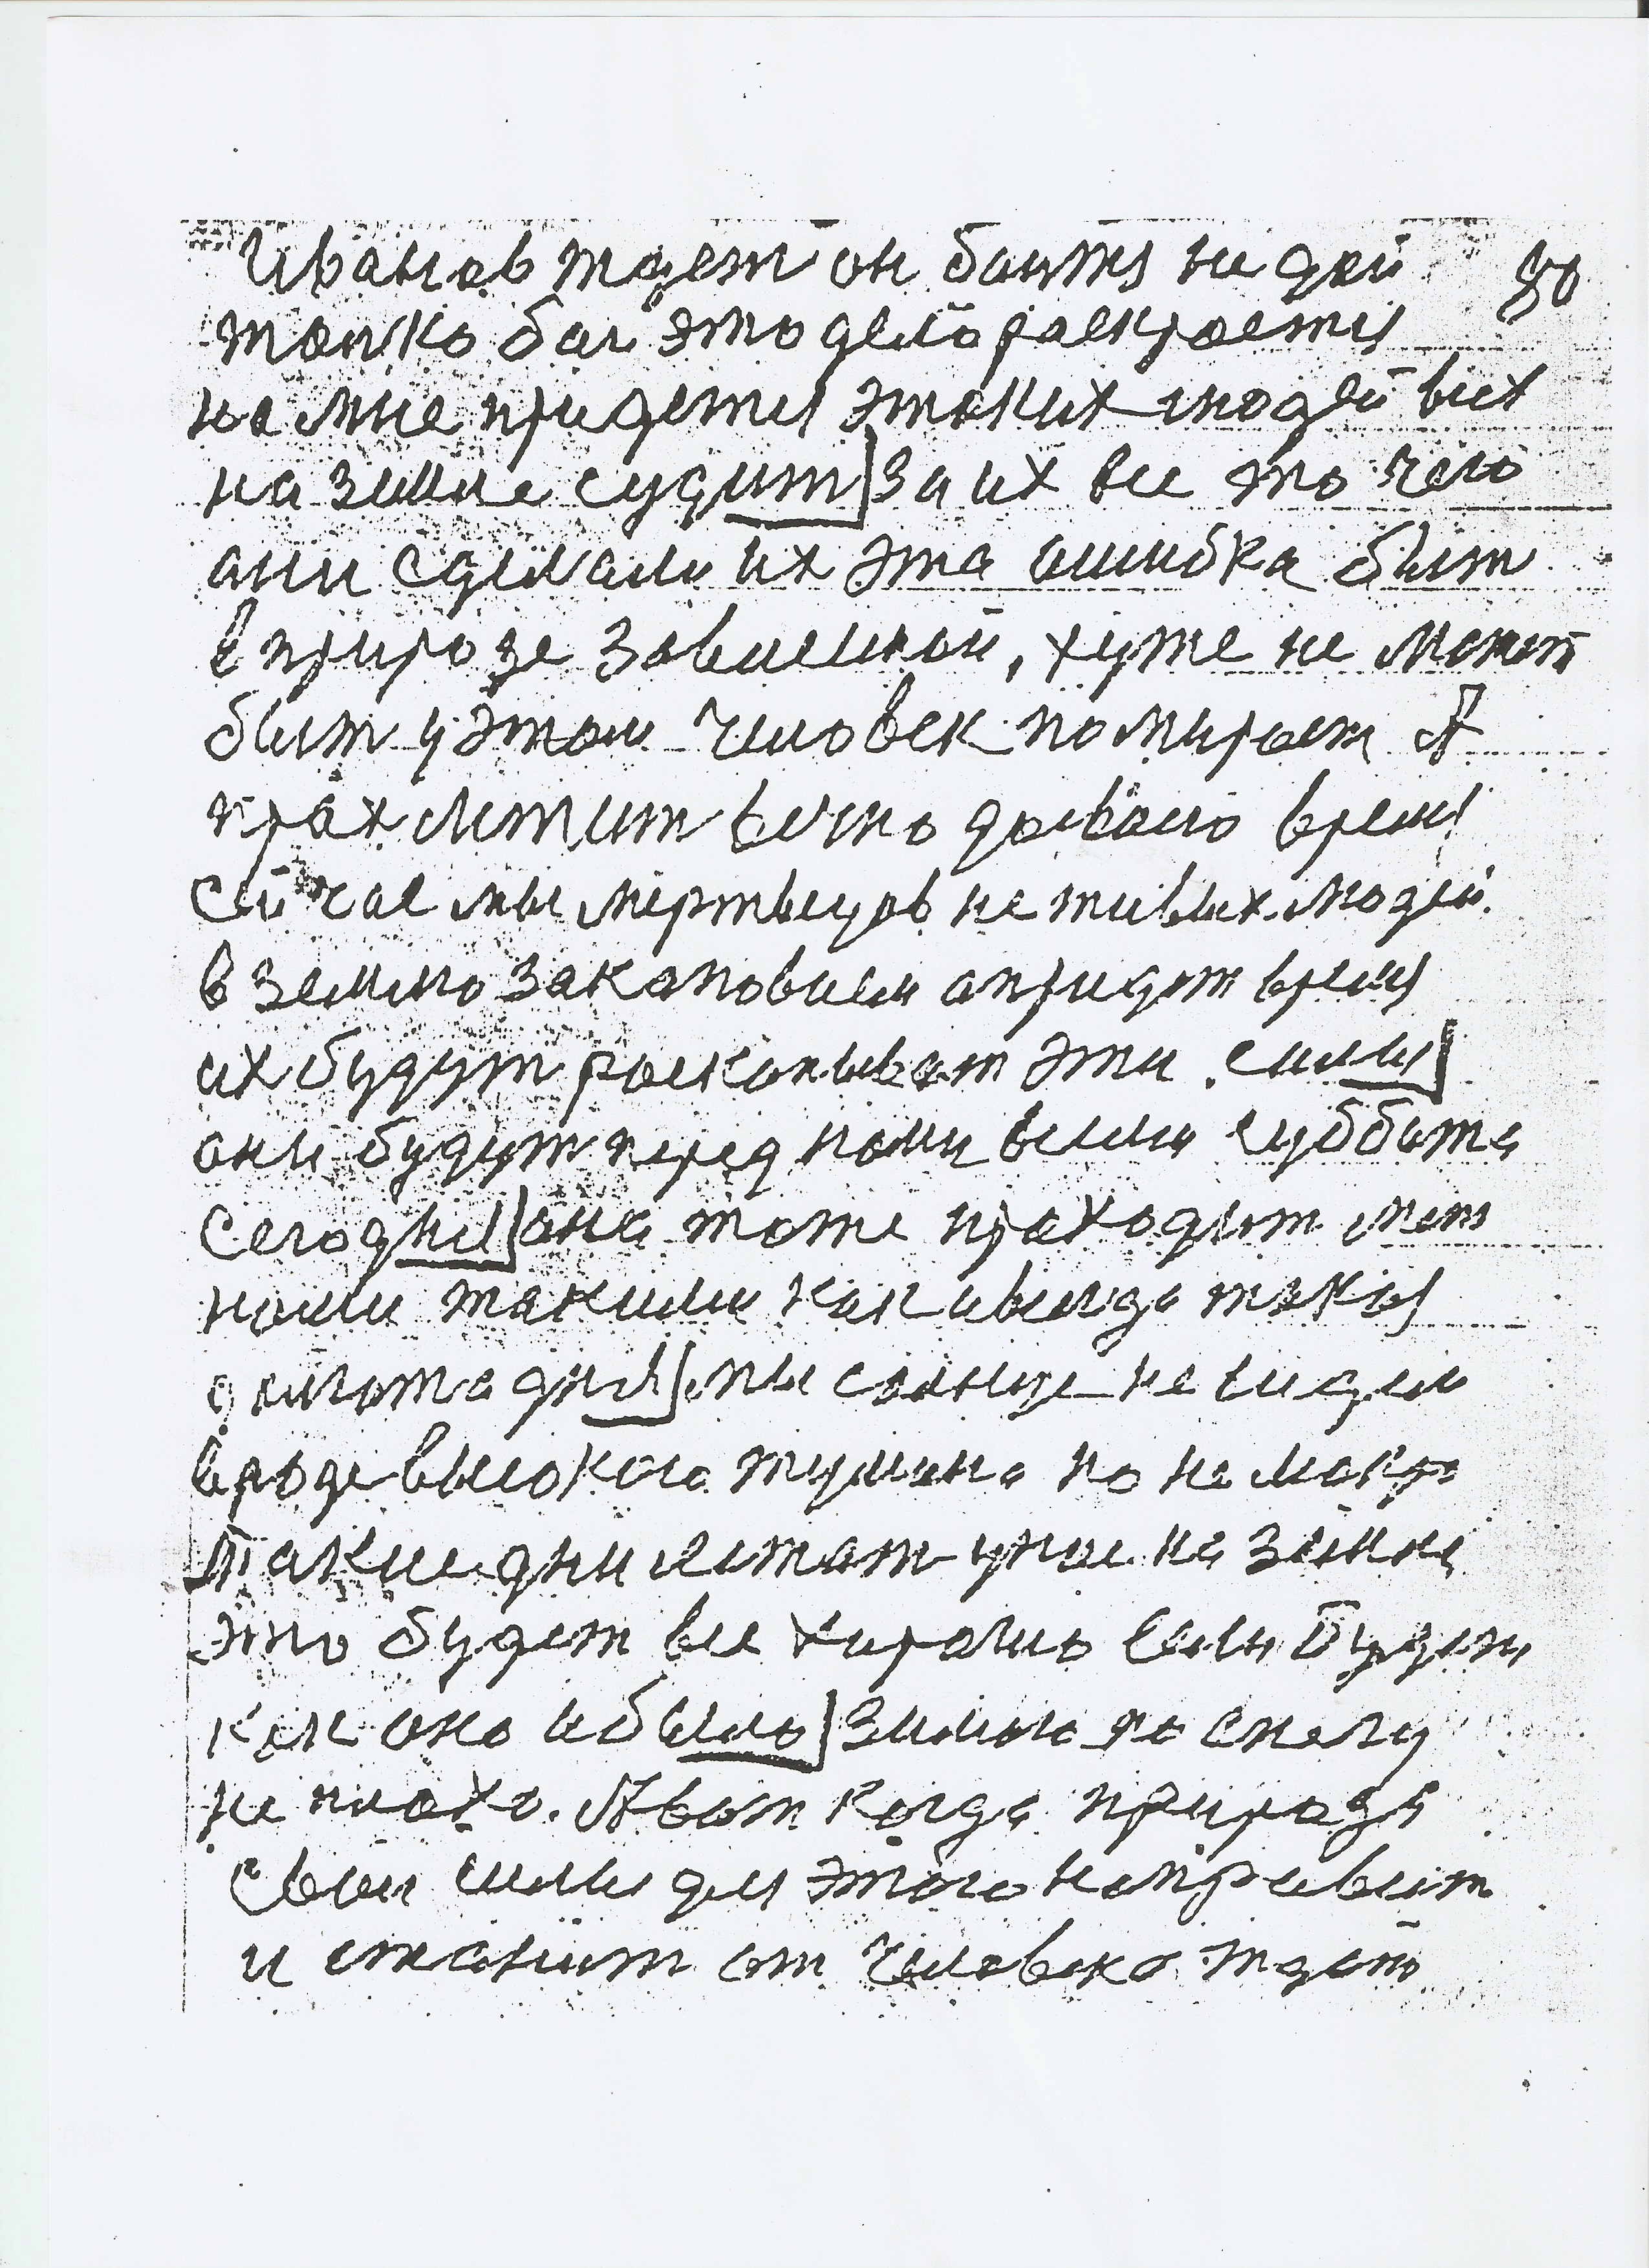 Иванов ждет он боится не дай 80
толко бог это дело раскроетis
на мне придетis этаких людей всех
на земле судит] за их все это чего
ани сделали их эта ошибка быт
в природе зависимой, хуже не может
быт у этом чиловек помирает А
прах летит вечно доевоего время
Сейчас мы мертвецов не живых людей
в землю закоповаем а придет время
их будут раскапыват эти силы]
они будут перед нами всеми суббота
Сегодня] она тоже праходит меж
нами такими как и всигда такая
читога дня] мы солнце не видели
вроде высокого тумана но не мокро
Такие дни летат у нас на земле
это будет все харашо Если будет
как оно и было] Зимою по снегу
не плохо. А вот когда природа
Свои силы для этого направит
и станит от чиловека ждат